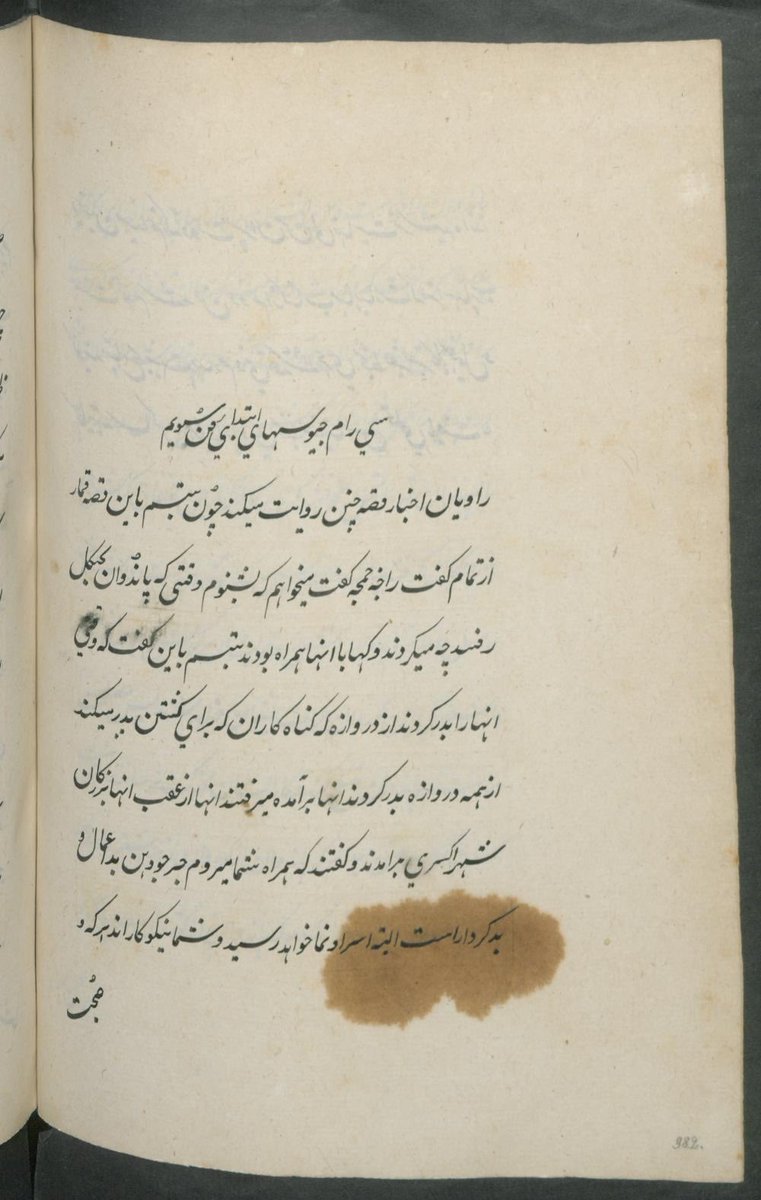 سري رام جيو سهاي ابتداي فن سويم
راويان اخبار قصه چنين روايت ميكنند چون بيشم باين قصه قمار
از تمام گفت راجه جمجه گفت ميخواهم كه بشنوم وقتي كه پاندوان بجنگل
رفتند چه ميكردند و كها با انها همراه بودند بيشم باين گفت كه وقتي
انها را بدر كردند از دروازه كه گناه كاران كه براي كشتن بدر ميكنند
از همه دروازه بدر كردند انها برآمده ميرفتند انها از عقب انها بزرگان
شهر اكسري برامدند و گفتند كه همراه شما ميروم جرجودهن بد اعمال و
بدكردار است البته او نما خواهد رسيد و شما نيكوكار اند هر كه و
صحبت
982.